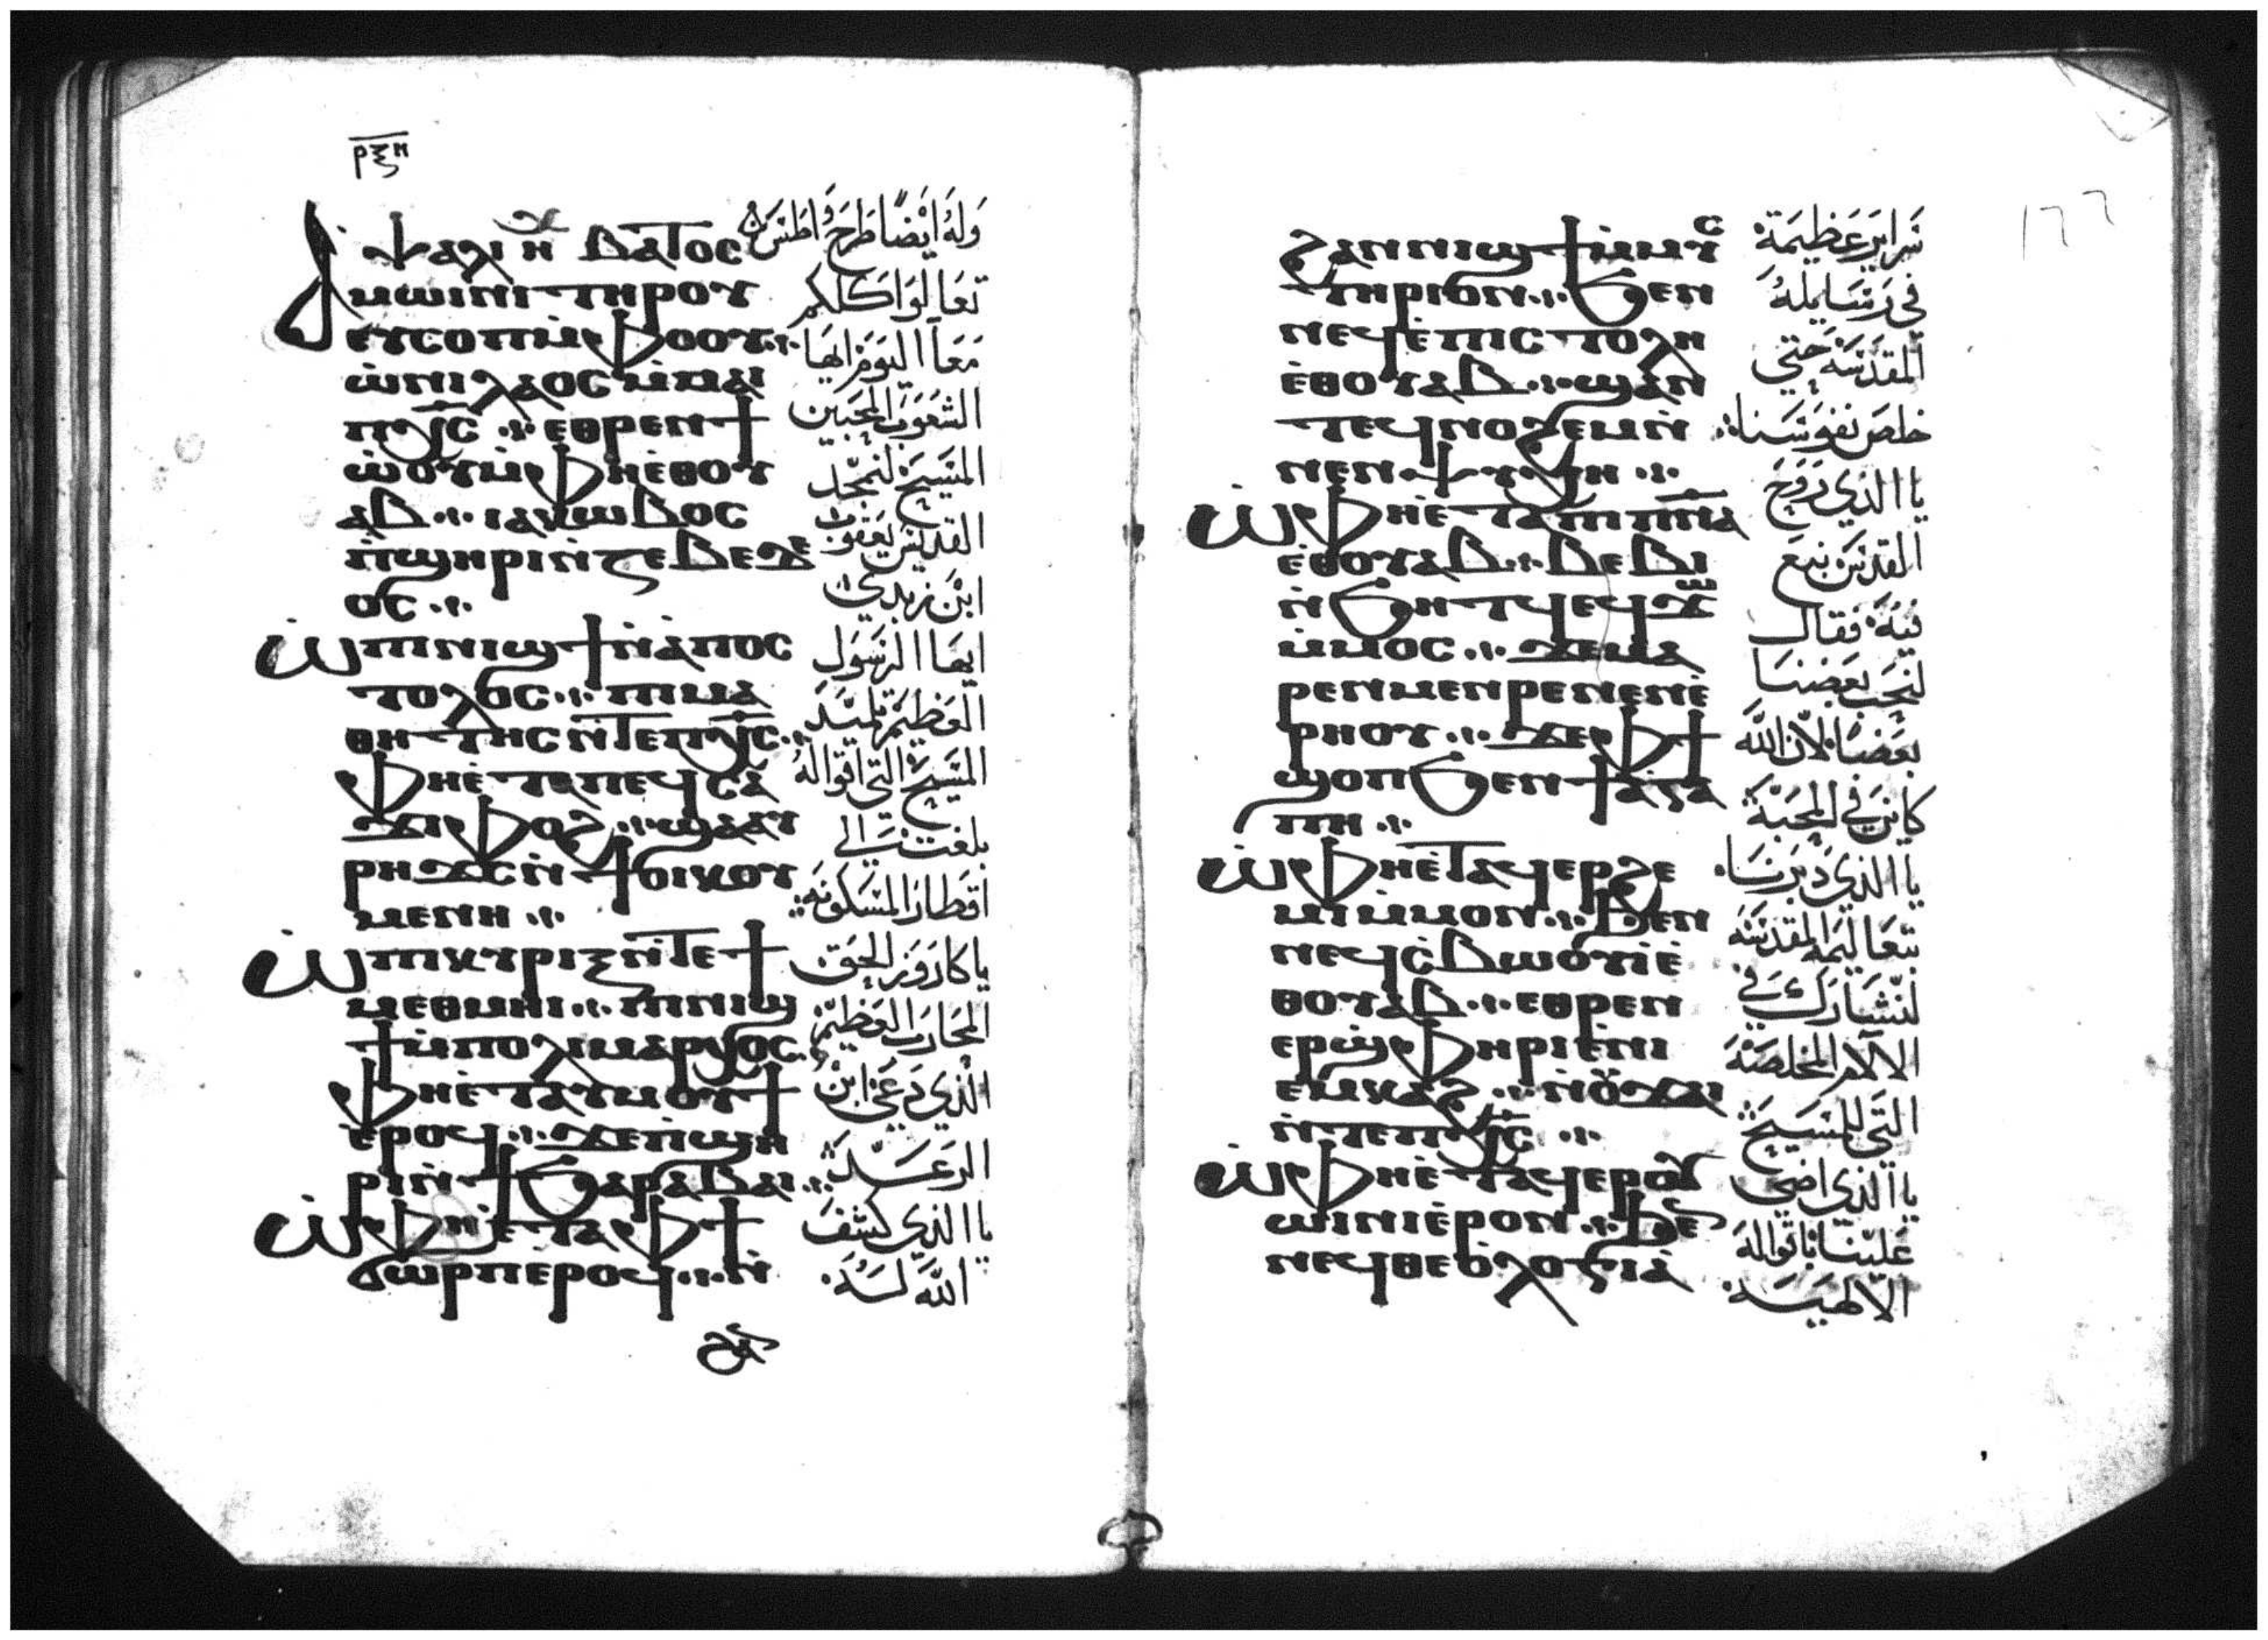 ⲣⲝⲏ
ⲯⲁⲗⲓ ⲏⲭ ⲃⲁⲧⲟⲥ
ⲁⲙⲱⲓⲛⲓ ⲧⲏⲣⲟⲩ
ⲉⲩⲥⲟⲡ ⲙ̀ⲫⲟⲟⲩ ⁘
ⲱ̀ ⲡⲓⲗⲁⲟⲥ ⲙ̀ⲙⲁⲓ
ⲡⲭ̅ⲥ̅ ⁘ ⲉⲑⲣⲉⲛϯ
ⲱ̀ⲟⲩ ⲙ̀ⲫⲏⲉ̀ⲑⲟⲩ
ⲁⲃ ⁘ ⲓⲁⲕⲱⲃⲟⲥ
ⲡ̀ϣⲏⲣⲓ ⲛ̀ⲍⲉⲃⲉⲇⲉ
ⲟⲥ ⁘
ⲱ̀ ⲡⲓⲛⲓϣϯ ⲛ̀ⲁ̀ⲡⲟⲥ
ⲧⲟⲗⲟⲥ ⁘ ⲡⲓⲙⲁ
ⲑⲏⲧⲏⲥ ⲛ̀ⲧⲉ ⲡⲭ̅ⲥ̅ ⁘
ⲫⲏⲉ̀ⲧⲁ ⲡⲉϥⲥⲁ
ϫⲓ ⲫⲟϩ ⁘ ϣⲁ ⲁⲩ
ⲣⲏϫⲥ ⲛ̀ϯⲟⲓⲕⲟⲩ
ⲙⲉⲛⲏ ⁘
ⲱ̀ ⲡⲓⲕⲩⲣⲓⲝ ⲛ̀ⲧⲉ ϯ
ⲙⲉⲑⲙⲏⲓ ⁘ ⲡⲓⲛⲓϣ
ϯ ⲙ̀ⲡⲟⲗⲓⲙⲁⲣⲭⲟⲥ ⁘
ⲫⲏⲉ̀ⲧⲁⲩⲙⲟⲩϯ
ⲉ̀ⲣⲟϥ ⁘ ϫⲉ ⲡ̀ϣⲏ
ⲣⲓ ⲛ̀ϯϧⲁⲣⲁⲃⲁⲓ ⁘
ⲱ̀ ⲫⲏⲉ̀ⲧⲁ ⲫϯ
ϭⲱⲣⲡ ⲉ̀ⲣⲟϥ ⁘ ⲛ̀
وله ايضًا طرح واطس
تعالوا كلكم
معًا اليوم ايها
الشعوب المحبين
المسيح لنمجد
القديس يعقوب
ابن زبدي
ايها الرسول
العظيم تلميد
المسيح التي اقواله
بلغت الي
اقطار المسكونة
يا كاروز الحق
المحارب العظيم
الذي دعي ابن
الرعد
يا الذي كشف
الله له
١٦٦
ϩⲁⲛⲛⲓϣϯ ⲙ̀ⲙⲩⲥ
ⲧⲏⲣⲓⲟⲛ ⁘ ϧⲉⲛ
ⲛⲉϥⲉ̀ⲡⲓⲥⲧⲟⲗⲏ
ⲉ̀ⲑⲟⲩⲁⲃ ⁘ ϣⲁⲛ
ⲧⲉϥⲛⲟϩⲉⲙ ⲛ̀
ⲛⲉⲛⲯⲩⲭⲏ ⁘
ⲱ̀ ⲫⲏⲉ̀ⲧⲁ ⲡⲓⲡ̅ⲛ̅ⲁ̅
ⲉ̀ⲑⲟⲩⲁⲃ ⁘ ⲃⲉⲃⲓ
ⲛ̀ϧⲏⲧϥ ⲉϥϫⲱ
ⲙ̀ⲙⲟⲥ ⁘ ϫⲉ ⲙⲁ
ⲣⲉⲛⲙⲉⲛⲣⲉ ⲛⲉⲛⲉ̀
ⲣⲏⲟⲩ ⁘ ϫⲉ ⲫϯ
ϣⲟⲡ ϧⲉⲛ ϯⲁ̀ⲅⲁ
ⲡⲏ ⁘
ⲱ̀ ⲫⲏⲉ̀ⲧⲁϥⲉⲣϩⲉ
ⲙⲓ ⲙ̀ⲙⲟⲛ ⁘ ϧⲉⲛ
ⲛⲉϥⲥ̀ⲃⲱⲟⲩⲓ̀ ⲉ̀
ⲑⲟⲩⲁⲃ ⁘ ⲉⲑⲣⲉⲛ
ⲉⲣϣ̀ⲫⲏⲣⲓ ⲉ̀ⲛⲓ
ⲉⲙⲕⲁϩ ⁘ ⲛ̀ⲟⲩϫⲁⲓ
ⲛ̀ⲧⲉ ⲡⲭ̅ⲥ̅ ⁘
ⲱ̀ ⲫⲏⲉ̀ⲧⲁϥⲉⲣⲟⲩ
ⲱⲓⲛⲓ ⲉ̀ⲣⲟⲛ ⁘ ϧⲉⲛ
ⲛⲉϥⲑⲉⲟ̀ⲗⲟⲅⲓⲁ̀
سراير عظيمة
في رسايله
المقدسة حتي
خلص نفوسنا
يا الذي روح
القدس نبع
فيه فقال
لنحب بعضنا
بعضًا لان الله
كاين في المحبة
يا الذي دبرنا
بتعاليمه المقدسة
لنشارك في
الالام المخلصة
التي للمسيح
يا الذي اضى
علينا باقواله
الالهية